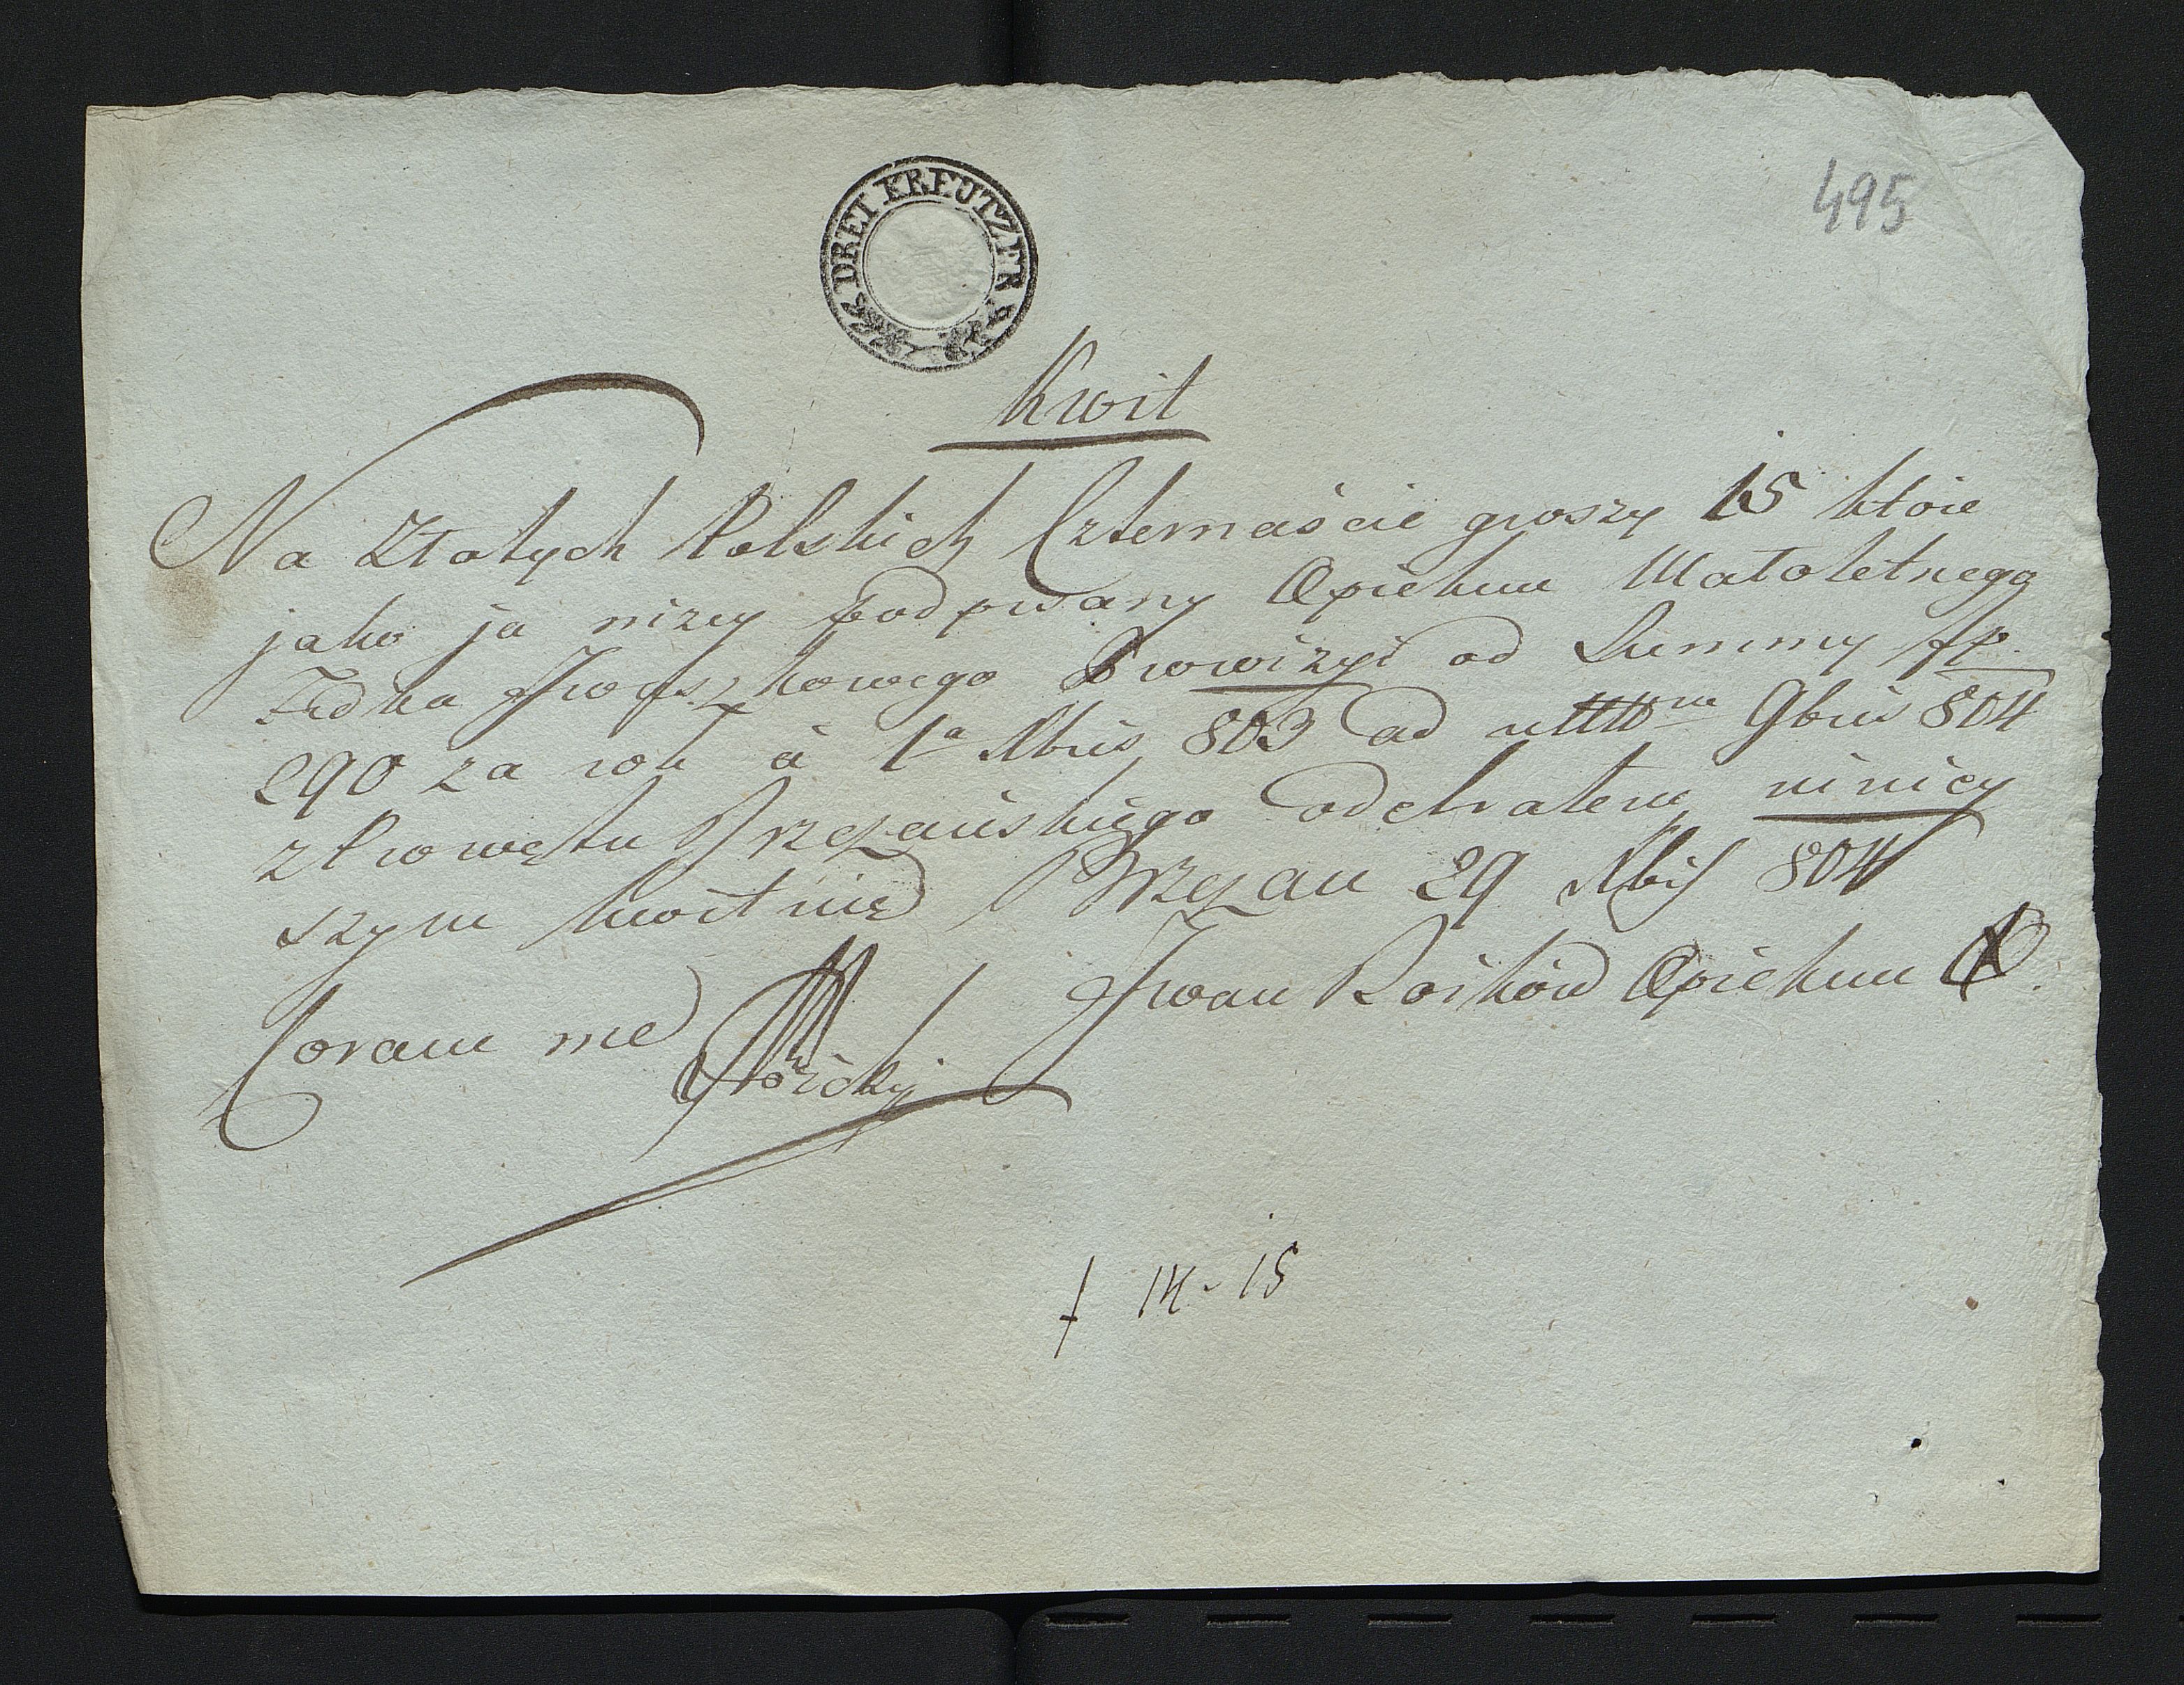 495
DREI KREUTZER
Kwit
Na Złotych Polskich Czternaście groszy 15 które
jako ja niżey podpisany Opiekun Małoletnego
Fedka Iwaszkowego Prowizyi od Summy fp.
290 za rok à 1a Xbris 803 ad ultimam 9bris 804
z Prowętu Brzeżańskiego odebrałem, niniey
szym kwituię Brzeżan 29 Xbris 804
Iwan Roików Opiekun X.
Coram me
f 14 - 15